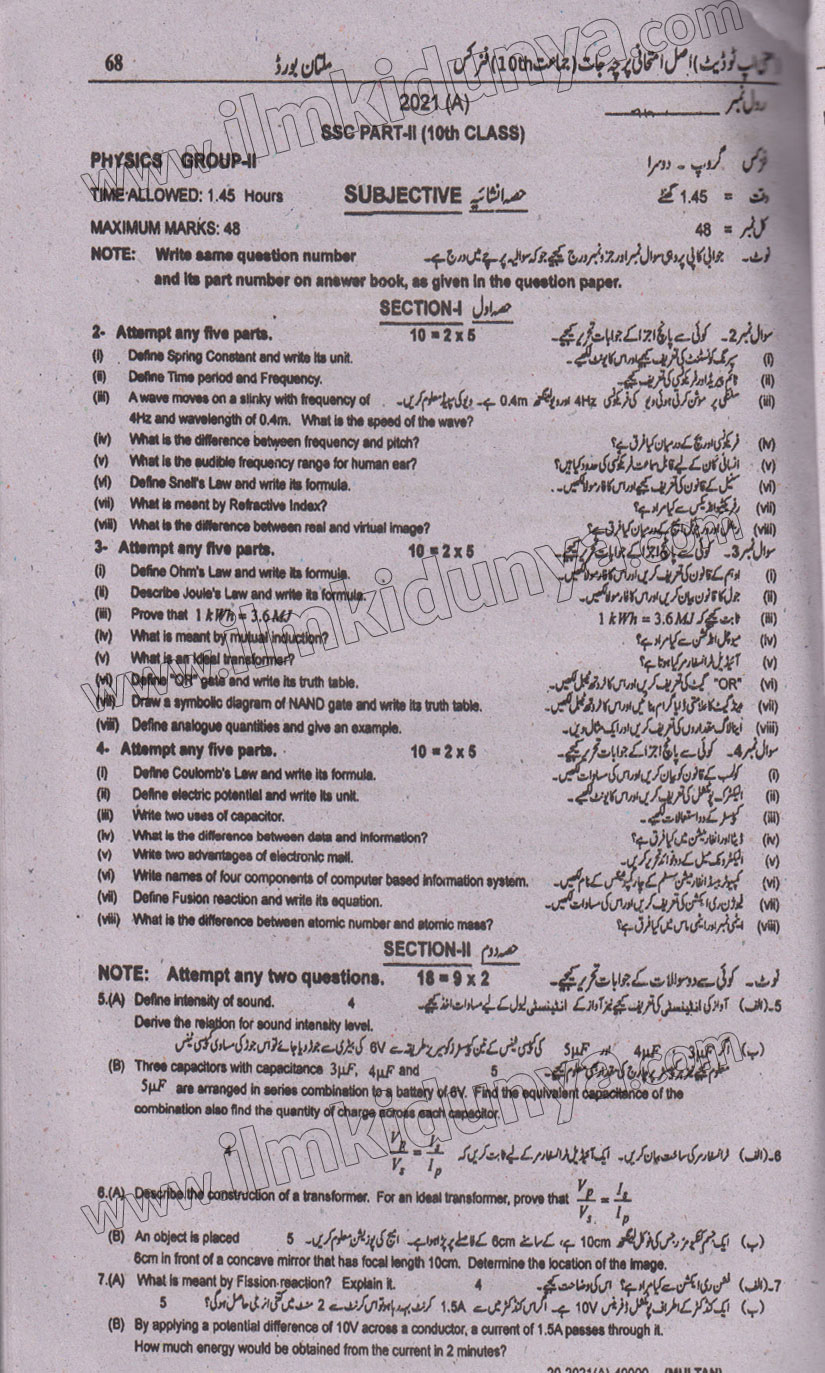 68 ملتان بورڈ (اپ ٹوڈیٹ) اصل امتحانی پرچہ جات (جماعت 10th) فزکس
2021 (A) رول نمبر
SSC PART-II (10th CLASS)
PHYSICS GROUP-II فزکس گروپ - دوسرا
TIME ALLOWED: 1.45 Hours SUBJECTIVE حصہ انشائیہ وقت = 1.45 گھنٹے
MAXIMUM MARKS: 48 کل نمبر = 48
NOTE: Write same question number نوٹ۔ جوابی کاپی پر وہی سوال نمبر اور جزو نمبر درج کیجیے جو کہ سوالیہ پرچے میں درج ہے۔
and its part number on answer book, as given in the question paper.
SECTION-I حصہ اول
2- Attempt any five parts. 10 = 2 x 5 سوال نمبر 2۔ کوئی سے پانچ اجزا کے جوابات تحریر کیجیے۔
(i) Define Spring Constant and write its unit. سپرنگ کونسٹنٹ کی تعریف کیجیے اور اس کا یونٹ لکھیے۔ (i)
(ii) Define Time period and Frequency. ٹائم پیریڈ اور فریکوئنسی کی تعریف کیجیے۔ (ii)
(iii) A wave moves on a slinky with frequency of سلنکی پر موشن کرتی ہوئی ویو کی فریکوئنسی 4Hz اور ویولینگتھ 0.4m ہے۔ ویو کی سپیڈ معلوم کریں۔ (iii)
4Hz and wavelength of 0.4m. What is the speed of the wave?
(iv) What is the difference between frequency and pitch? فریکوئنسی اور پچ کے درمیان کیا فرق ہے؟ (iv)
(v) What is the audible frequency range for human ear? انسانی کان کے لیے قابل سماعت فریکوئنسی کی حدود کیا ہیں؟ (v)
(vi) Define Snell's Law and write its formula. سنیل کے قانون کی تعریف کیجیے اور اس کا فارمولا لکھیں۔ (vi)
(vii) What is meant by Refractive Index? رفریکٹیو انڈیکس سے کیا مراد ہے؟ (vii)
(viii) What is the difference between real and virtual image? ریئل اور ورچوئل امیج کے درمیان کیا فرق ہے؟ (viii)
3- Attempt any five parts. 10 = 2 x 5 سوال نمبر 3۔ کوئی سے پانچ اجزا کے جوابات تحریر کیجیے۔
(i) Define Ohm's Law and write its formula. اوہم کے قانون کی تعریف کریں اور اس کا فارمولا لکھیں۔ (i)
(ii) Describe Joule's Law and write its formula. جول کا قانون بیان کریں اور اس کا فارمولا لکھیں۔ (ii)
(iii) Prove that 1 kWh = 3.6MJ ثابت کیجیے کہ 1 kWh = 3.6MJ (iii)
(iv) What is meant by mutual induction? میوچل انڈکشن سے کیا مراد ہے؟ (iv)
(v) What is an ideal transformer? آئیڈیل ٹرانسفارمر کیا ہوتا ہے؟ (v)
(vi) Define "OR" gate and write its truth table. "OR" گیٹ کی تعریف کریں اور اس کا ٹروتھ ٹیبل لکھیں۔ (vi)
(vii) Draw a symbolic diagram of NAND gate and write its truth table. نینڈ گیٹ کا علامتی ڈایا گرام بنائیں اور اس کا ٹروتھ ٹیبل لکھیں۔ (vii)
(viii) Define analogue quantities and give an example. اینالاگ مقداروں کی تعریف کریں اور ایک مثال دیں۔ (viii)
4- Attempt any five parts. 10 = 2 x 5 سوال نمبر 4۔ کوئی سے پانچ اجزا کے جوابات تحریر کیجیے۔
(i) Define Coulomb's Law and write its formula. کولمب کے قانون کو بیان کریں اور اس کی مساوات لکھیں۔ (i)
(ii) Define electric potential and write its unit. الیکٹرک پوٹینشل کی تعریف کریں اور اس کا یونٹ لکھیے۔ (ii)
(iii) Write two uses of capacitor. کپیسٹر کے دو استعمالات لکھیے۔ (iii)
(iv) What is the difference between data and information? ڈیٹا اور انفارمیشن میں کیا فرق ہے؟ (iv)
(v) Write two advantages of electronic mail. الیکٹرونک میل کے دو فوائد تحریر کریں۔ (v)
(vi) Write names of four components of computer based information system. کمپیوٹر بیسڈ انفارمیشن سسٹم کے چار کمپونینٹس کے نام لکھیں۔ (vi)
(vii) Define Fusion reaction and write its equation. فیوژن ری ایکشن کی تعریف کریں اور اس کی مساوات لکھیں۔ (vii)
(viii) What is the difference between atomic number and atomic mass? ایٹمی نمبر اور ایٹمی ماس میں کیا فرق ہے؟ (viii)
SECTION-II حصہ دوم
NOTE: Attempt any two questions. 18 = 9 x 2 نوٹ۔ کوئی سے دو سوالات کے جوابات تحریر کیجیے۔
5.(A) Define intensity of sound. 4 5۔(الف) آواز کی انٹینسٹی کی تعریف کیجیے نیز آواز کے انٹینسٹی لیول کے لیے مساوات اخذ کیجیے۔
Derive the relation for sound intensity level.
(ب) اگر 3μF، 4μF اور 5μF کی کپیسی ٹینس کے تین کپیسٹرز کو سیریز طریقے سے 6V کی بیٹری سے جوڑ دیا جائے تو اس جوڑ کی مساوی کپیسی ٹینس
(B) Three capacitors with capacitance 3μF, 4μF and 5 معلوم کیجیے نیز ہر کپیسٹر پر چارج کی مقدار بھی معلوم کیجیے۔
5μF are arranged in series combination to a battery of 6V. Find the equivalent capacitance of the
combination also find the quantity of charge across each capacitor.
4 Vp/Vs = Is/Ip 6۔(الف) ٹرانسفارمر کی ساخت بیان کریں۔ ایک آئیڈیل ٹرانسفارمر کے لیے ثابت کریں کہ
6.(A) Describe the construction of a transformer. For an ideal transformer, prove that Vp/Vs = Is/Ip
(B) An object is placed 5 (ب) ایک جسم کنکیو مرر جس کی فوکل لینگتھ 10cm ہے، کے سامنے 6cm کے فاصلے پر پڑا ہوا ہے۔ امیج کی پوزیشن معلوم کریں۔
6cm in front of a concave mirror that has focal length 10cm. Determine the location of the image.
7.(A) What is meant by Fission reaction? Explain it. 4 7۔(الف) فشن ری ایکشن سے کیا مراد ہے؟ اس کی وضاحت کیجیے۔
5 (ب) ایک کنڈکٹر کے اطراف پوٹینشل ڈفرینس 10V ہے۔ اگر اس کنڈکٹر میں سے 1.5A کرنٹ بہہ رہا ہو تو اس کرنٹ سے 2 منٹ میں کتنی انرجی حاصل ہوگی؟
(B) By applying a potential difference of 10V across a conductor, a current of 1.5A passes through it.
How much energy would be obtained from the current in 2 minutes?
20-2021(A)-40000 (MULTAN)
www.ilmkidunya.com
www.ilmkidunya.com
www.ilmkidunya.com